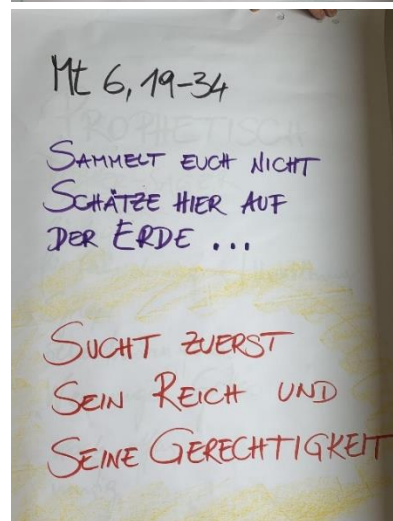 Mt 6, 19-34
SAMMELT EUCH NICHT
SCHÄTZE HIER AUF
DER ERDE ...
SUCHT ZUERST
SEIN REICH UND
SEINE GERECHTIGKEIT